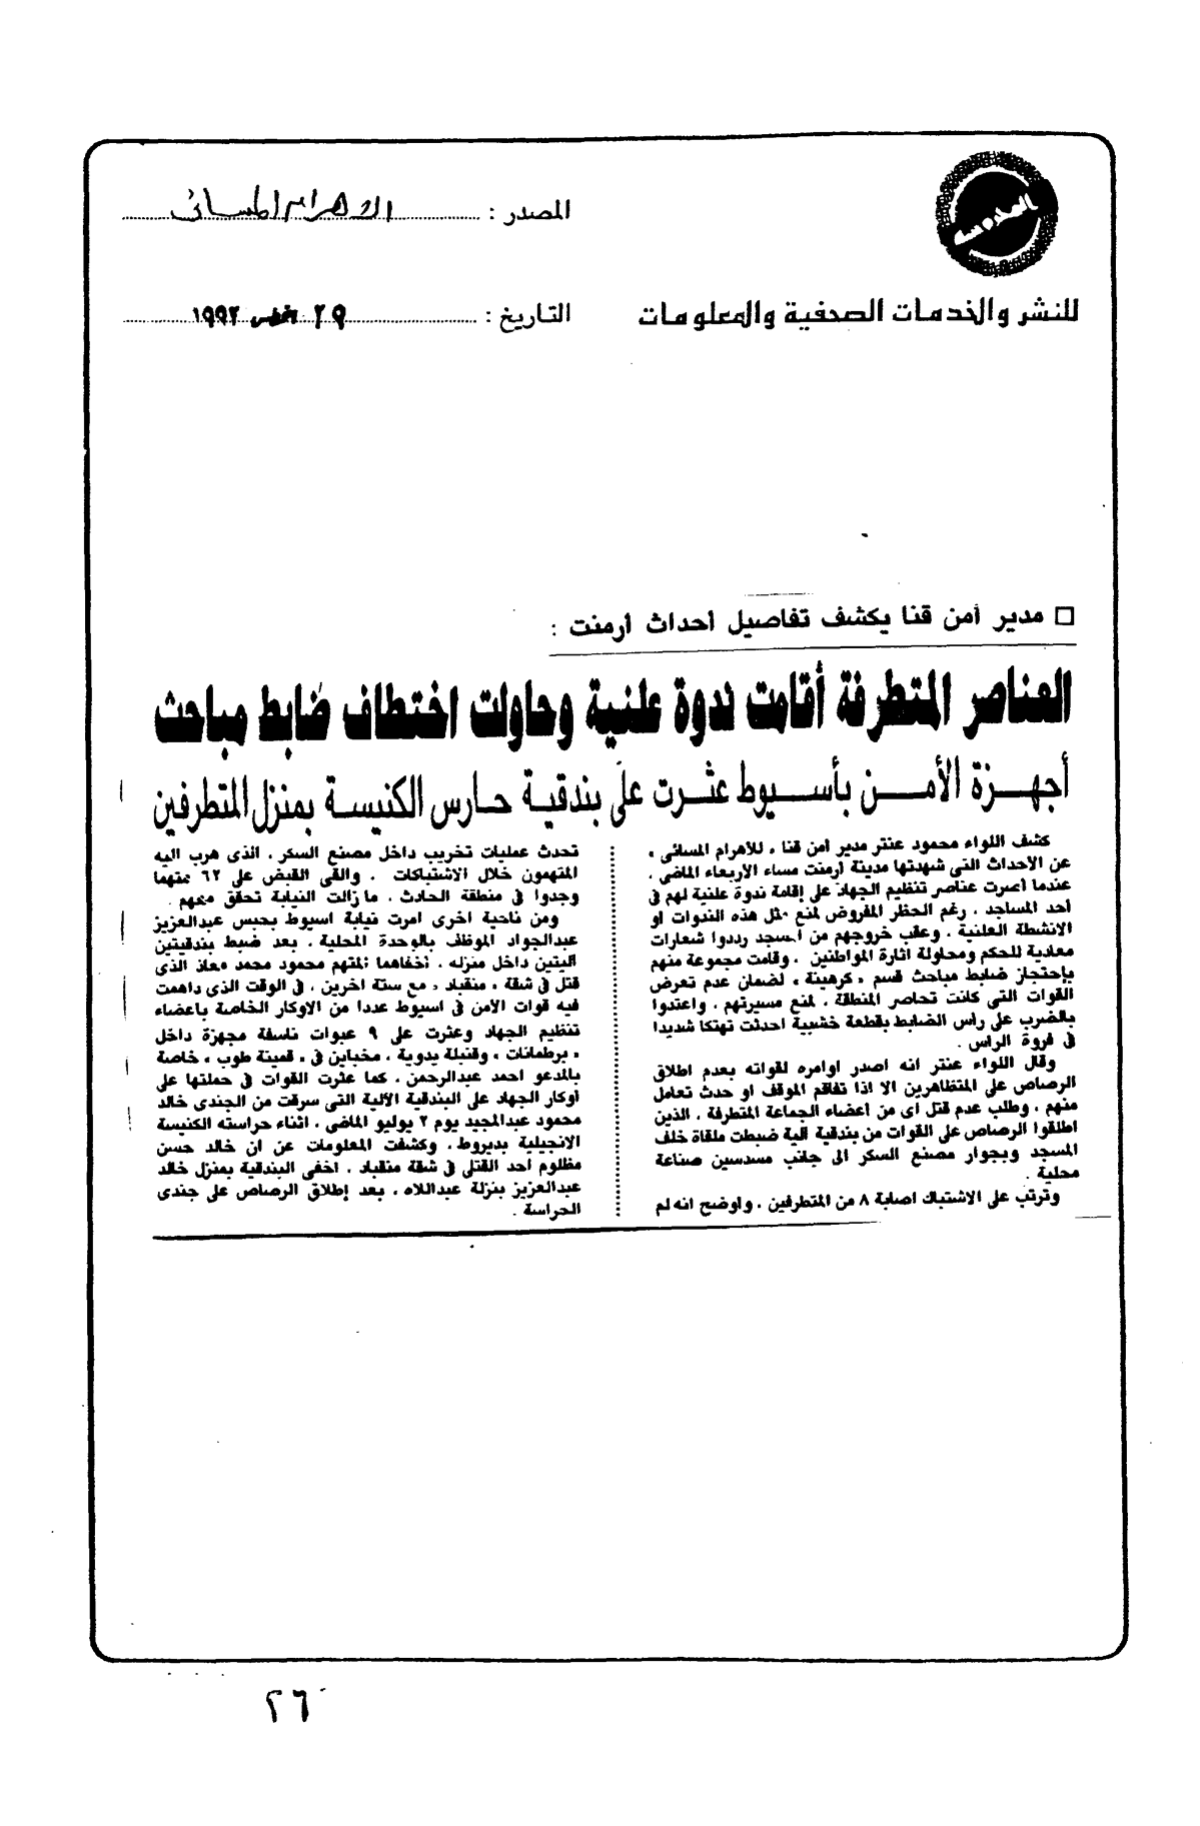 المصدر : الاهرام المسائى
للنشر والخدمات الصحفية والمعلومات
التاريخ : ٢٩ اغسطس ١٩٩٢
□ مدير أمن قنا يكشف تفاصيل أحداث أرمنت :
العناصر المتطرفة أقامت ندوة علنية وحاولت اختطاف ضابط مباحث
أجهزة الأمن بأسيوط عثرت على بندقية حارس الكنيسة بمنزل المتطرفين
كشف اللواء محمود عنتر مدير أمن قنا ، للأهرام المسائى ،
عن الأحداث التى شهدتها مدينة أرمنت مساء الأربعاء الماضى .
عندما أصرت عناصر تنظيم الجهاد على إقامة ندوة علنية لهم فى
أحد المساجد . رغم الحظر المفروض لمنع مثل هذه الندوات او
الانشطة العلنية . وعقب خروجهم من المسجد رددوا شعارات
معادية للحكم ومحاولة اثارة المواطنين . وقامت مجموعة منهم
بإحتجاز ضابط مباحث قسم ، كرهينة ، لضمان عدم تعرض
القوات التى كانت تحاصر المنطقة . لمنع مسيرتهم . واعتدوا
بالضرب على رأس الضابط بقطعة خشبية احدثت تهتكا شديدا
فى فروة الراس .
وقال اللواء عنتر انه اصدر اوامره لقواته بعدم اطلاق
الرصاص على المتظاهرين الا اذا تفاقم الموقف او حدث تعامل
منهم . وطلب عدم قتل اى من أعضاء الجماعة المتطرفة . الذين
اطلقوا الرصاص على القوات من بندقية آلية ضبطت ملقاة خلف
المسجد وبجوار مصنع السكر الى جانب مسدسين صناعة
محلية .
وترتب على الاشتباك اصابة ٨ من المتطرفين . واوضح انه لم
تحدث عمليات تخريب داخل مصنع السكر . الذى هرب اليه
المتهمون خلال الاشتباكات . والقى القبض على ٦٢ متهما
وجدوا فى منطقة الحادث . مازالت النيابة تحقق معهم .
ومن ناحية اخرى امرت نيابة اسيوط بحبس عبدالعزيز
عبدالجواد الموظف بالوحدة المحلية . بعد ضبط بندقيتين
آليتين داخل منزله . أخفاهما المتهم محمود محمد معاذ الذى
قتل فى شقة ، منقباد ، مع ستة اخرين . فى الوقت الذى داهمت
فيه قوات الامن فى اسيوط عددا من الاوكار الخاصة باعضاء
تنظيم الجهاد وعثرت على ٩ عبوات ناسفة مجهزة داخل
، برطمانات ، وقنبلة يدوية ، مخباين فى ، قمينة طوب ، خاصة
بالمدعو احمد عبدالرحمن . كما عثرت القوات فى حملتها على
أوكار الجهاد على البندقية الآلية التى سرقت من الجندى خالد
محمود عبدالمجيد يوم ٢ يوليو الماضى . اثناء حراسته الكنيسة
الانجيلية بديروط . وكشفت المعلومات عن ان خالد حسن
مظلوم أحد القتلى فى شقة منقباد . اخفى البندقية بمنزل خالد
عبدالعزيز بنزلة عبداللاه ، بعد إطلاق الرصاص على جندى
الحراسة .
٢٦